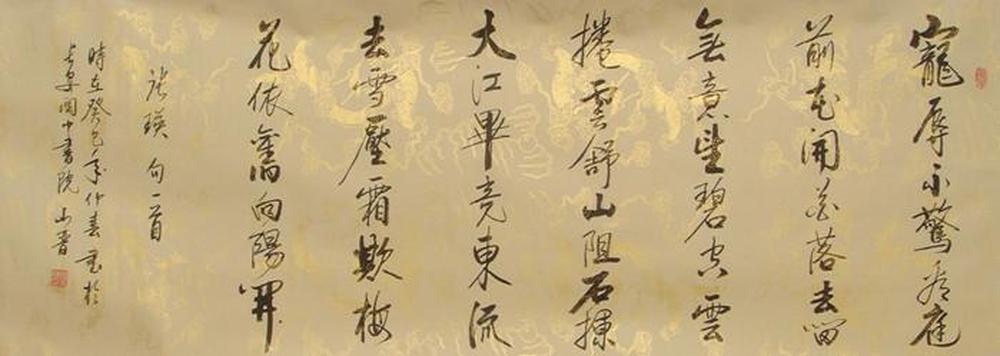 寵辱不驚看庭
前花開花落去留
無意望碧空雲
捲雲舒山阻石攔
大江畢竟東流
去雪壓霜欺梅
花依舊向陽開
張瑛句一首
時在癸巳年仲春書於
長安関中書院